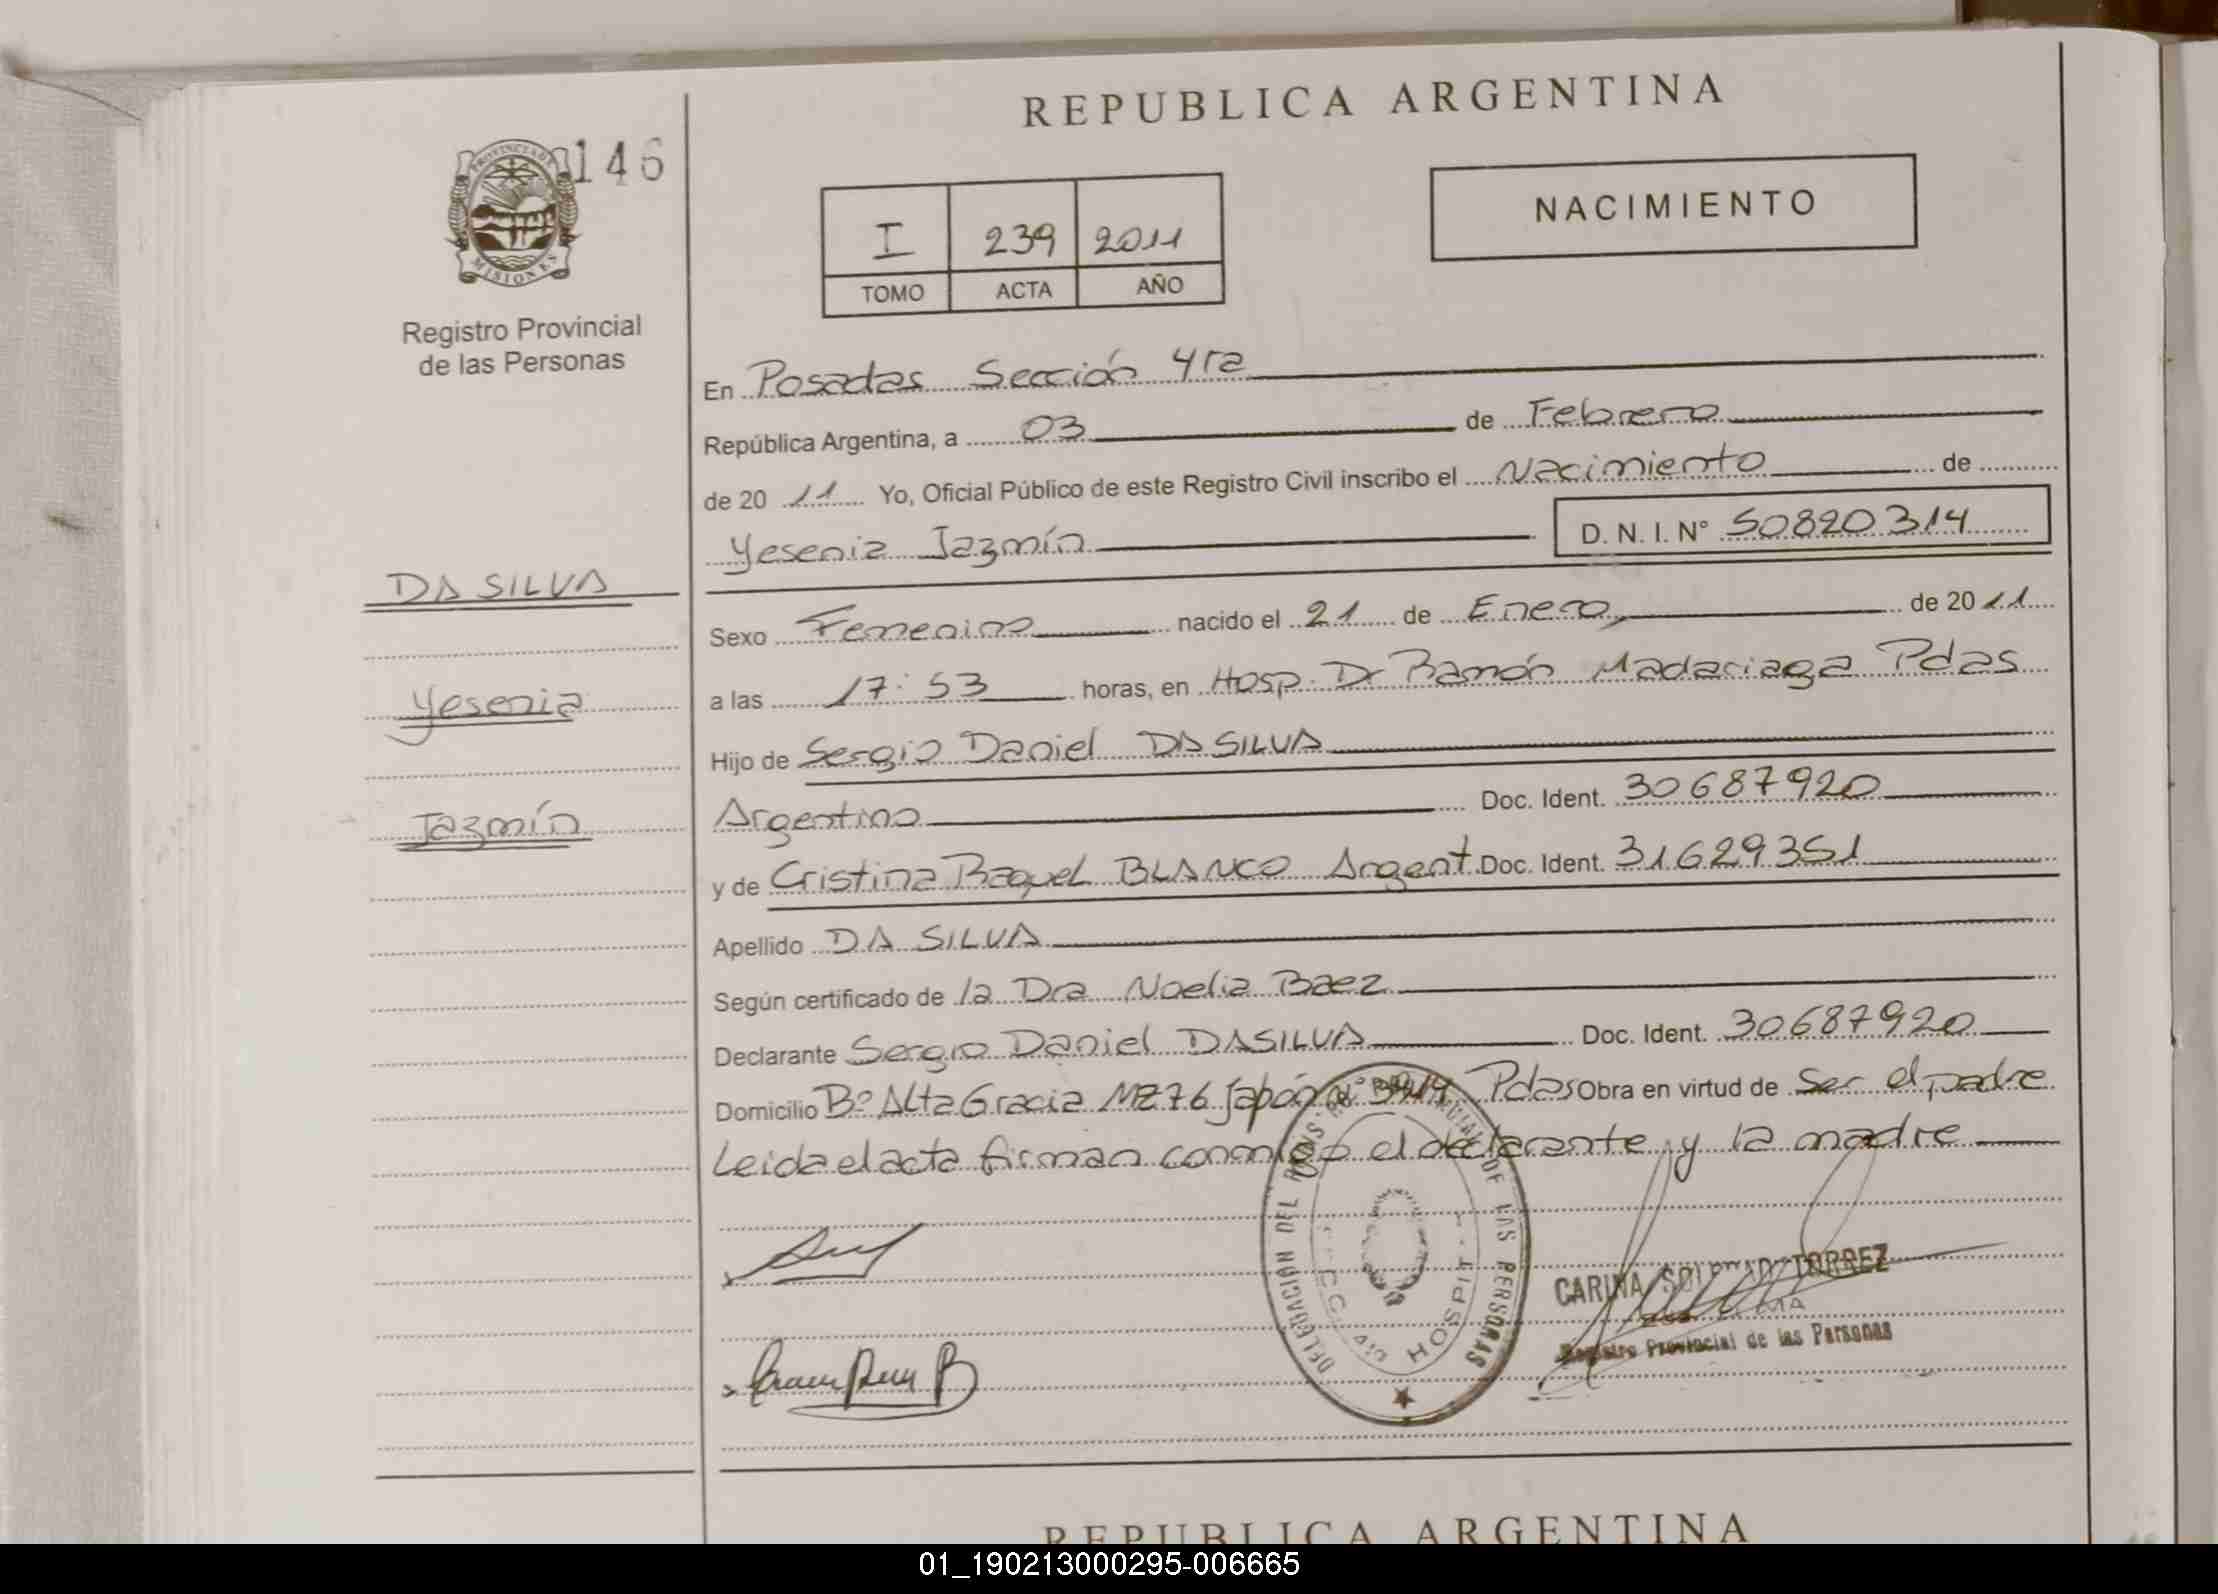 REPUBLICA ARGENTINA
PROVINCIA DE
MISIONES
146
Registro Provincial
de las Personas
I 239 2011
TOMO ACTA AÑO
NACIMIENTO
En Posadas Sección 4ta
República Argentina, a 03 de Febrero
de 20 11 Yo, Oficial Público de este Registro Civil inscribo el Nacimiento de
Yesenia Jazmín D. N. I. N° 50820314
DA SILVA
Yesenia
Jazmín
Sexo Femenino nacido el 21 de Enero de 20 11
a las 17:53 horas, en Hosp. Dr Ramón Madariaga Pdas
Hijo de Sergio Daniel DA SILVA
Argentino Doc. Ident. 30687920
y de Cristina Raquel BLANCO Argent. Doc. Ident. 31629351
Apellido DA SILVA
Según certificado de la Dra Noelia Baez
Declarante Sergio Daniel DASILVA Doc. Ident. 30687920
Domicilio B° Alta Gracia MZ 76 Japón N° Pdas Obra en virtud de Ser el padre
Leida el acta firman conmigo el declarante y la madre
DELEGACION DEL DE LAS PERSONAS
HOSPIT
CARINA TORREZ
Registro Provincial de las Personas
REPUBLICA ARGENTINA
01_190213000295-006665